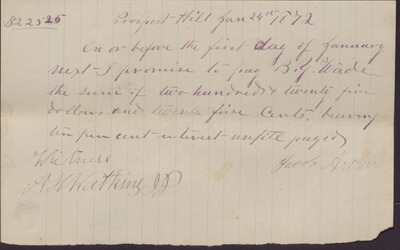 $225 25 Prospect Hill Jan 24th 1872
On or before the first day of January
next I promise to pay B. Y. Wade
the sum of two hundred & twenty five
dollars and twente five Cents, bearing
ten per cent interest untile paged
Witness
A. K. Watkins J.P. Jacob